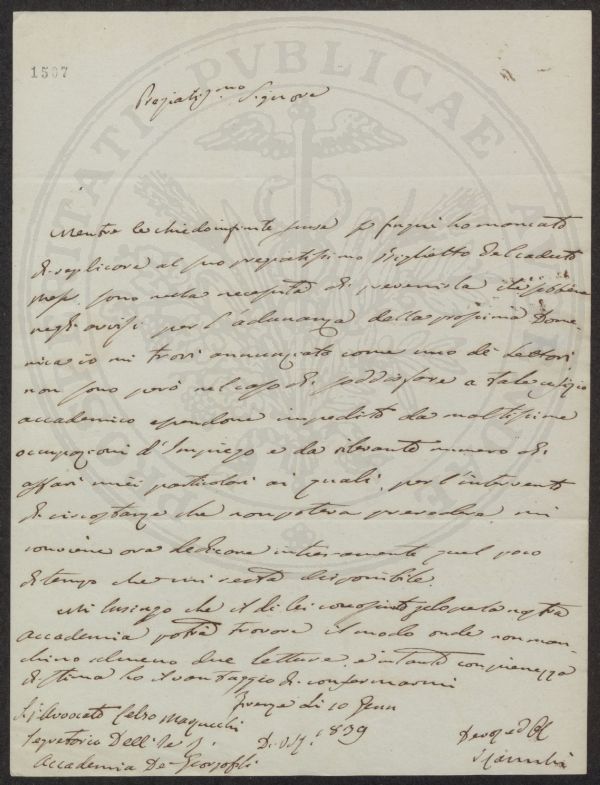 1507
PROSPERITATI PVBLICAE AVGENDAE
Pregiatis.mo Signore
Mentre le chiedo infinite scuse se fin qui ho mancato
di replicare al suo pregiatissimo Biglietto del caduto
mese sono nella necessità di prevenirla che sebbene
negli avvisi per l'adunanza della prossima Dome-
nica io mi trovi annunziato come uno de' Lettori
non sono però nel caso di soddisfare a tale ufizio
accademico essendone impedito da moltissime
occupazioni d'Impiego e da rilevante numero di
affari miei particolari ai quali, per l'intervento
di circostanze che non poteva prevedere mi
conviene ora dedicare intieramente quel poco
di tempo che mi resta disponibile.
Mi lusingo che il di lei conosciuto zelo per la nostra
accademia potrà trovare il modo onde non man-
chino almeno due letture e intanto con pienezza
di stima ho il vantaggio di confermarmi
Firenze li 10 Genn
Sig Avvocato Celso Marzucchi
Segretario Delle
Accademia De Georgofili
Di V.S. 1839
Devot ed Obl